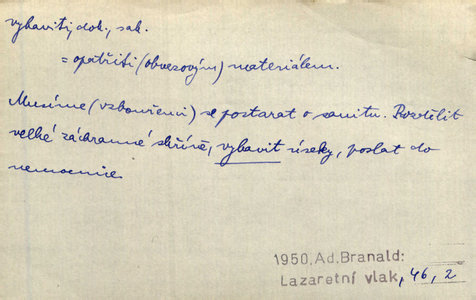 vybaviti, dok., sak.
= opatřiti (obvazovým) materiálem.
Musíme (vzbouřenci) se postarat o sanitu. Rozdělit
velké záchranné skříně, vybavit úseky, poslat do
nemocnic.
1950, Ad. Branald:
Lazaretní vlak, 46, 2